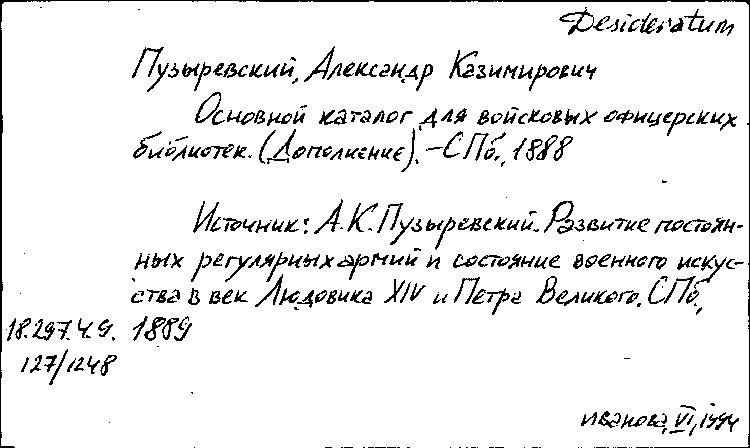 Desideratum
Пузыревский, Александр Казимирович
Основной каталог для войсковых офицерских
библиотек. (Дополнение). – СПб., 1888
Источник: А.К. Пузыревский. Развитие постоян-
ных регулярных армий и состояние военного искус-
ства в век Людовика XIV и Петра Великого. СПб.,
18.297.4.9. 1889
127/1248
Иванова, VI, 1994